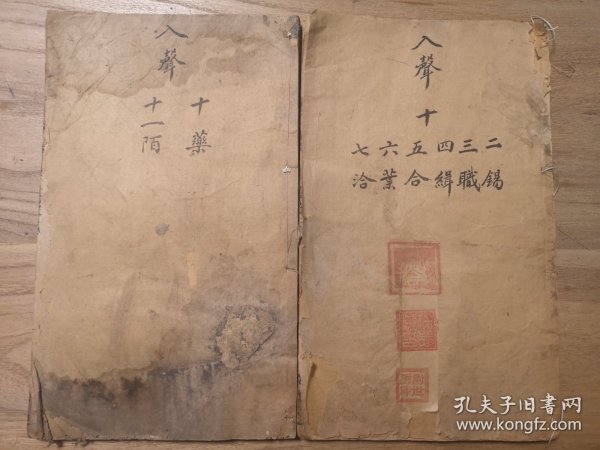 入聲
十藥
十一陌
入聲
十
二錫
三職
四緝
五合
六葉
七洽
孔夫子旧书网
www.kongfz.com